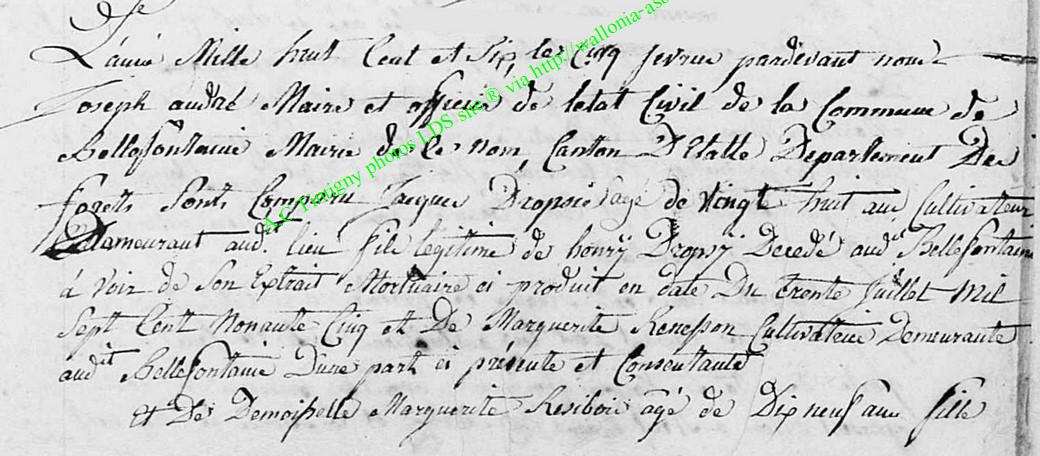 De
L'anné Mille huit Cent et Six, le Cinq fevrie pardevant nous
Joseph andré Maire et officié de letat Civil de la Commune de
Bellefontaine Mairie de Ce nom, Canton D'Etalle Departement Des
forets Sonts Comparu Jacque Dropsi agé de vingt huit ans Cultivateur
Dameurant audit lieu fils légitime de henrÿ Dropsÿ Decedé audit Bellefontaine
à voir de Son Extrait Mortuaire ci produit en date Du trente Juillet Mil
Sept Cent Nonante Cinq et De Marguerite Renesson Cultivateur Demeurante
audit Bellefontaine D'une part ci présente et Consentante
et De Demoisselle Marguerite Resibois agé de Dix neuf ans fille
A.C. Tintigny photos LDS site® via http://wallonia-asb